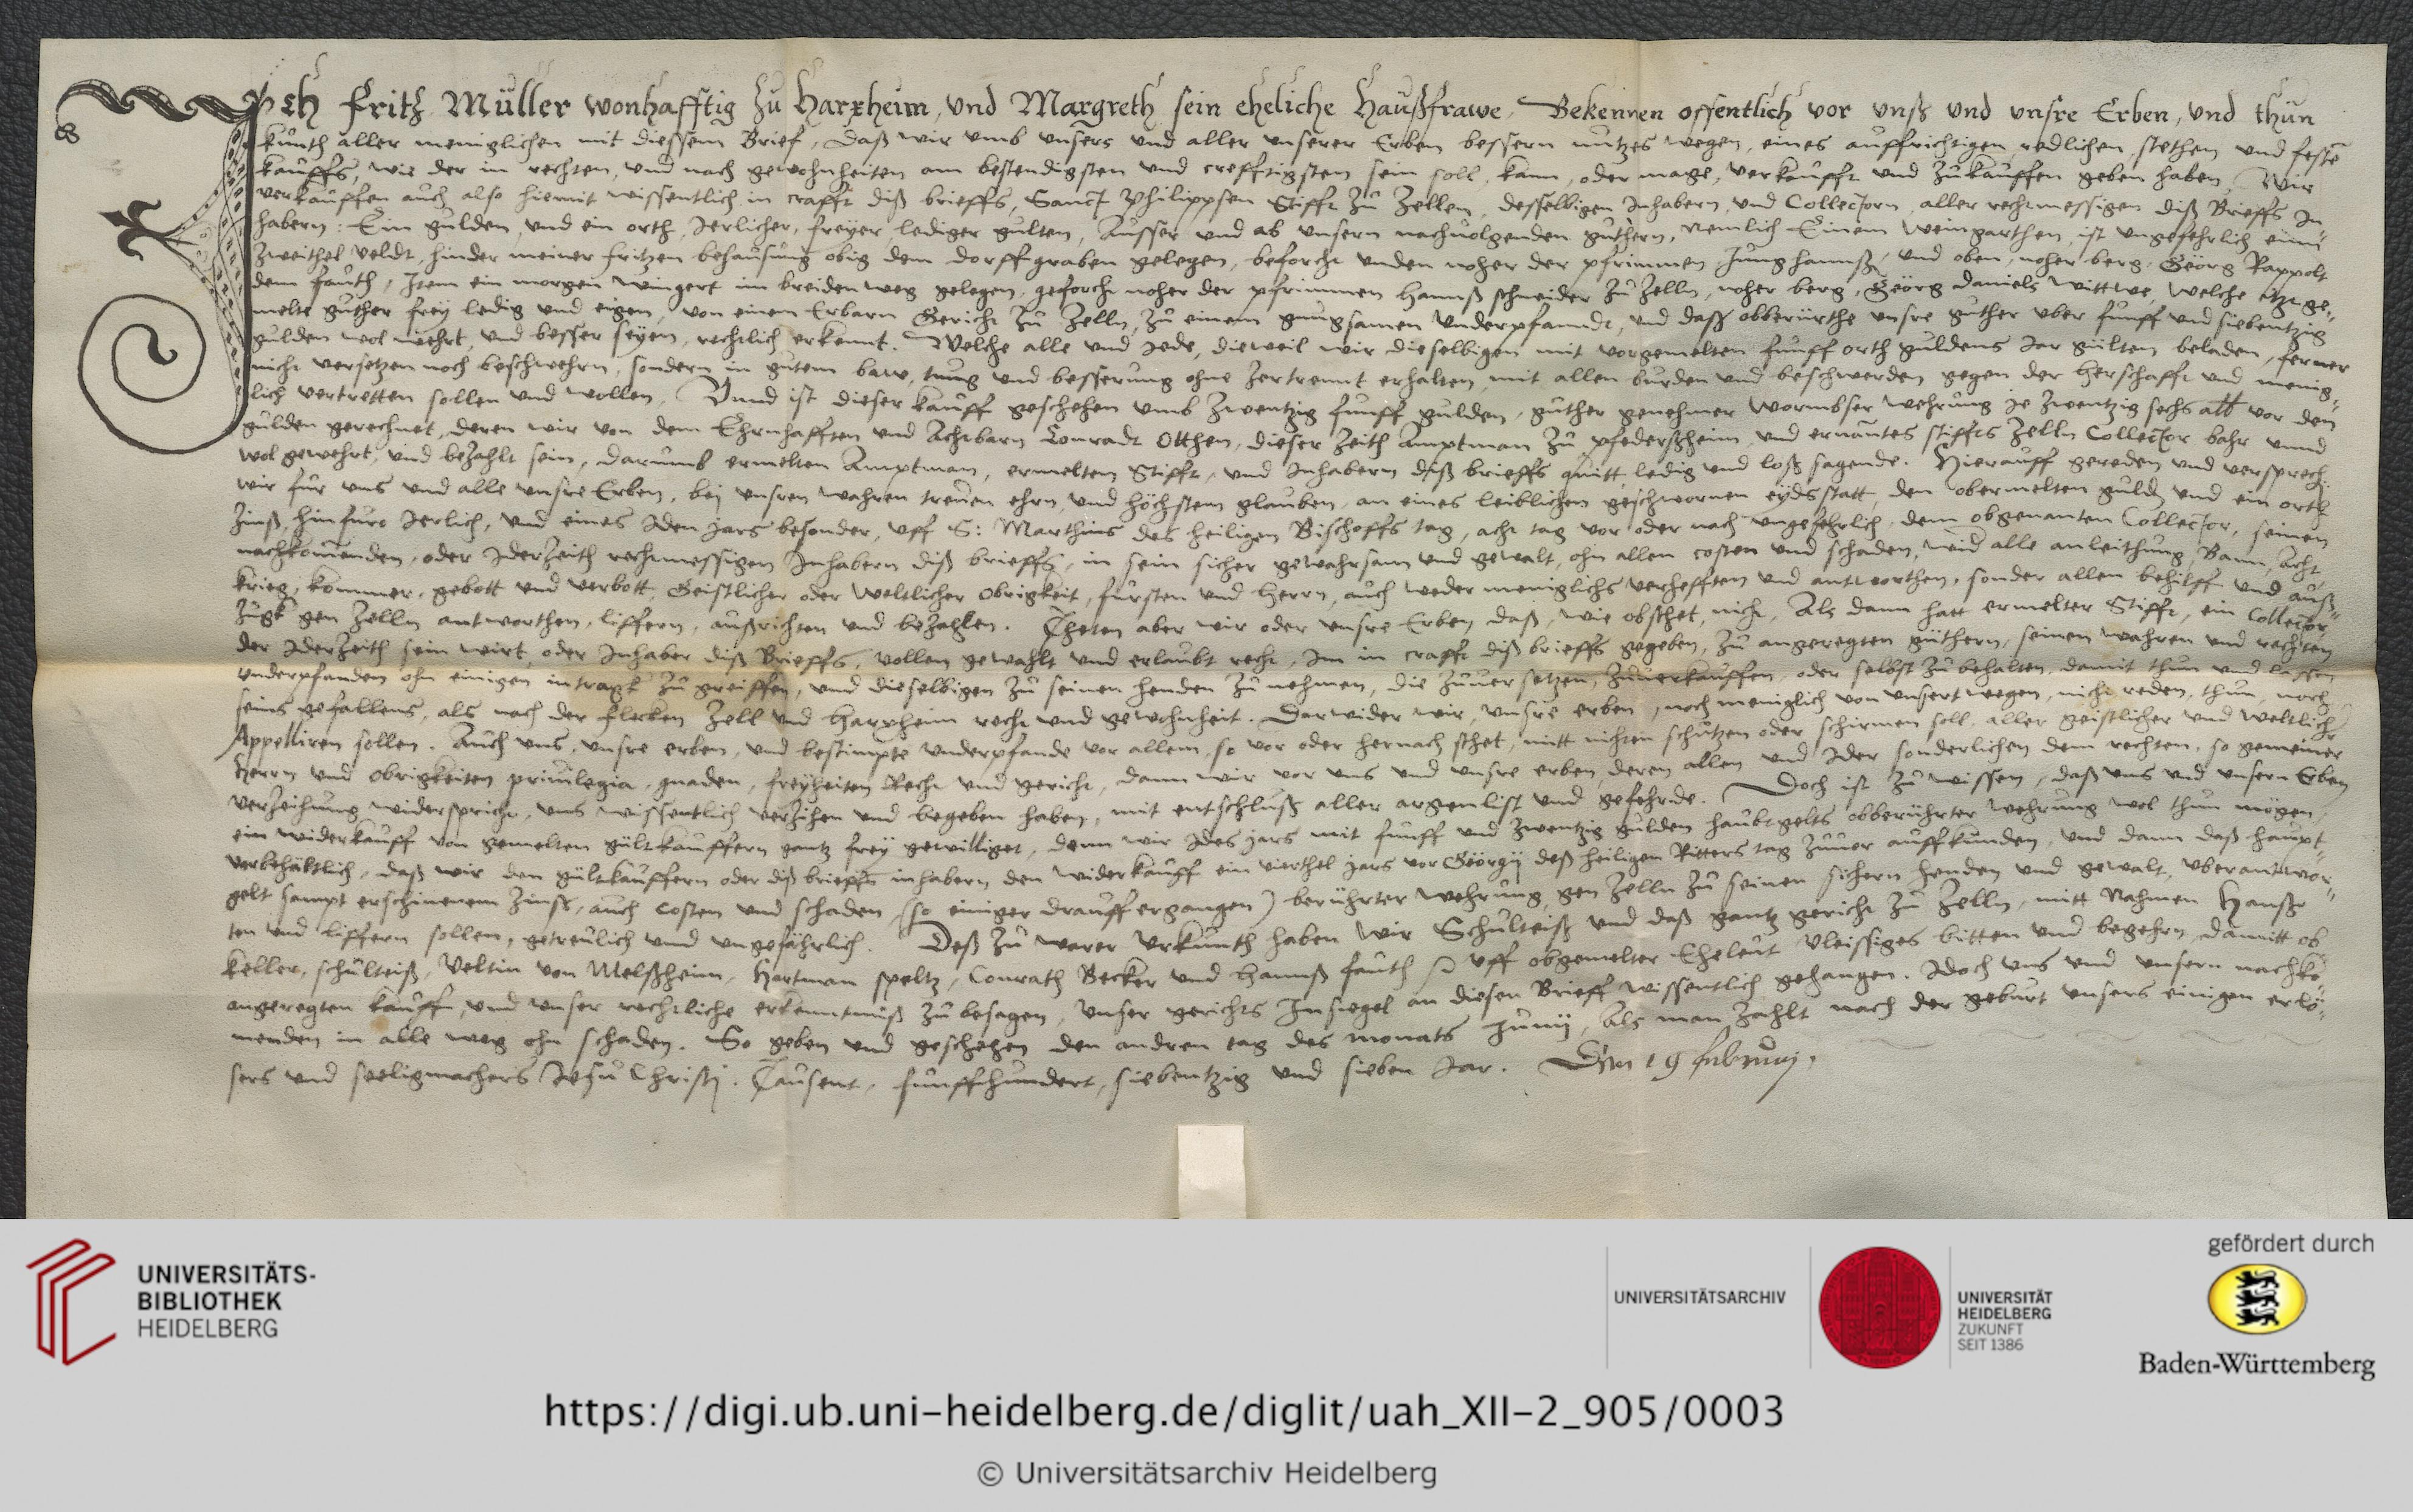 Ich Fritz Müller wonhafftig zu Harxheim, und Margreth sein eheliche Haußfrawe, Bekennen offentlich vor unß und unsre Erben, und thun
kunth aller meniglichen mit diessem Brief, daß wir umb unsers und aller unserer Erben bessern nutzes wegen, eines auffrichtigen redlichen, stethen und feste
kauffs, wie der in rechten, und nach gewohnheiten am bestendigsten und crefftigsten sein soll, kann, oder mage, verkaufft und zukauffen geben haben, Wir
verkauffen auch also hiemit wissentlich in crafft diß brieffs, Sanct Philippsen Stifft zu Zellen, desselbigen Inhabern, und Collectorn, aller rechtmessigen diß Brieffs In„
habern: Ein gulden, und ein orth, Jerlicher, freyer, lediger gulten, Ausser und ab unsern nachvolgenden guthern, Nemlich Einem Weingarthen, ist ungefehrlich eine
Zweithel veldt, hinder meiner Fritzen behausung obig dem dorffgraben gelegen, beforcht unden noher der Pfrimmen Jung Hannß, und oben, noher berg, Geörg Rappolt
dem fauth, Item ein morgen Wingert im breiden weg gelegen, geforcht noher der Pfrimmen Hannß Schneider zu Zelln, noher berg, Geörg Daniels Wittwe, Welche etzt ge„
melte guther frey ledig und eigen, von einem Erbarn Gericht zu Zelln, zu einem gnugsamen Underpfandt, und daß obberürthe unsre guther uber funff und siebentzig
gulden wol wehrt, und besser seyen, rechtlich erkennt. Welche alle und Jede, dieweil wir dieselbigen mit vorgemelten funff orth guldens Jar gülten beladen, ferner
nicht versetzen noch beschwehrn, sondern in gutem baw, tung und besserung ohne zertrennt erhalten, mit allen burden und beschwerden gegen der Herschafft und menig„
lich vertretten sollen und wollen, Unnd ist dieser kauff geschehen umb zwentzig funff gulden, guther genehmer Wormbser Wehrung Je zwentzig sechs alb vor den
gulden gerechnet, deren wir von dem Ehrnhafften und Achtbarn Conradt Otthen, dieser Zeith Amptman zu Pfedersheim, und ernantes Stiffts Zelln Collector bahr unnd
wol gewehrt, und bezahlt sein, darumb ermelten Amptman, ermelten Stifft, und Inhabern diß brieffs quitt, ledig und loß sagende. Hierauff gereden und versprech
wir fur uns und alle unsre Erben, bei unsren wahren treuen ehrn, und höchstem glauben, an eines leiblichen geschwornen eydsstatt, den obermelten guld und ein orth
Zinß, hinfuro Jerlich, und eines Iden Jars besonder, uff S: Marthins des heiligen Bischoffs tag, acht tag vor oder nach ungefehrlich, dem obgenanten Collector, seinen
nachkomenden, oder Iderzeith rechtmessigen Inhabern diß brieffs, in sein sicher gewahrsam und gewalt, ohn allen costen und schaden, wid alle anleithung, Bann, Acht
krieg, kommer, gebott und verbott, Geistlicher oder Weltlicher Obrigkeit, fursten und Herrn, auch weder meniglichs verhefften und antworthen, sonder allen behilff und auß„
zugk gen Zelln antworthen, liffern, außrichten und bezahlen. Theten aber wir oder unsre Erben daß, wie obsthet, nicht, Als dann hatt ermelter Stifft, ein Collector
der Iderzeith sein wirt, oder Inhaber diß Brieffs, vollen gewahlt und erlaubt recht, Im in crafft diß brieffs gegeben, zu angeregten güthern, seinen wahren und rechten
underpfanden ohn einigen intragk zu greiffen, und dieselbigen zu seinen henden zu nehmen, die zuversetzen, zuverkauffen, oder selbst zu behalten, damit thun und lassen
seins gefallens, als nach der flecken Zell und Harxheim recht und gewohnheit. Darwider wir, unsre erben, noch meniglich von unsert wegen, nicht reden, thun, noch
Appelliren sollen. Auch uns, unsre erben, und bestimpte Underpfande vor allem, so vor oder hernach sthet, mitt nichten schutzen oder schirmen soll, aller geistlicher und weltlich
Herrn und Obrigkeiten privilegia, gnaden, freyheiten Recht und gericht, dann wir vor uns und unsre erben, deren allen und Ider sonderlichen dem rechten, so gemeiner
verzeihung widerspricht, uns wissentlich verzihen und begeben haben, mit entschluß aller argenlist und gefehrde. Doch ist zu wissen, daß uns und unsern Erben
ein widerkauff von gemelten gültkauffern gantz frey gewilliget, denn wir Ides Jars mit funff und zwentzig gulden haubtgelts obberührter Wehrung wol thun mögen,
verbehältlich, daß wir den gültkauffern oder diß brieffs inhabern den widerkauff ein vierthel Jars vor Geörgij deß heiligen Ritters tag zuvor auffkunden, und dann daß haupt„
gelt sampt erschinenem Zinß, auch costen und schaden, (so einiger drauff ergangen) berührter Wehrung, gen Zelln zu seinen sichern henden und gewalt, uberantwor„
ten und liffern sollen, getreulich unnd ungefährlich. Deß zu warer Urkunth haben Wir Schulteiß und daß gantz gericht zu Zelln, mitt Nahmen Hanß
Keller, schulteiß, Veltin von Melßheim, Hartman Speltz, Conrath Becker und Hannß fauth uff obgemelter Eheleut vleissiges bitten und begehrn, damitt ob„
angeregten kauff, und unser rechtliche erkenntnuß zu besagen, Unser gerichts Insiegel an diesen Brieff wissentlich gehangen. Idoch uns und unsern nachko„
menden in alle weg ohn schaden. So geben und geschehen den andren tag des monats Junij, Als man zahlt nach der geburt unsers einigen erlö„
sers und seeligmachers Jesu Christj. Tausent, funffhundert, siebentzig und sieben Jar. Den 19 februarij.
UNIVERSITÄTS-
BIBLIOTHEK
HEIDELBERG
UNIVERSITÄTSARCHIV
UNIVERSITÄT
HEIDELBERG
ZUKUNFT
SEIT 1386
gefördert durch
Baden-Württemberg
https://digi.ub.uni-heidelberg.de/diglit/uah_XII-2_905/0003
© Universitätsarchiv Heidelberg